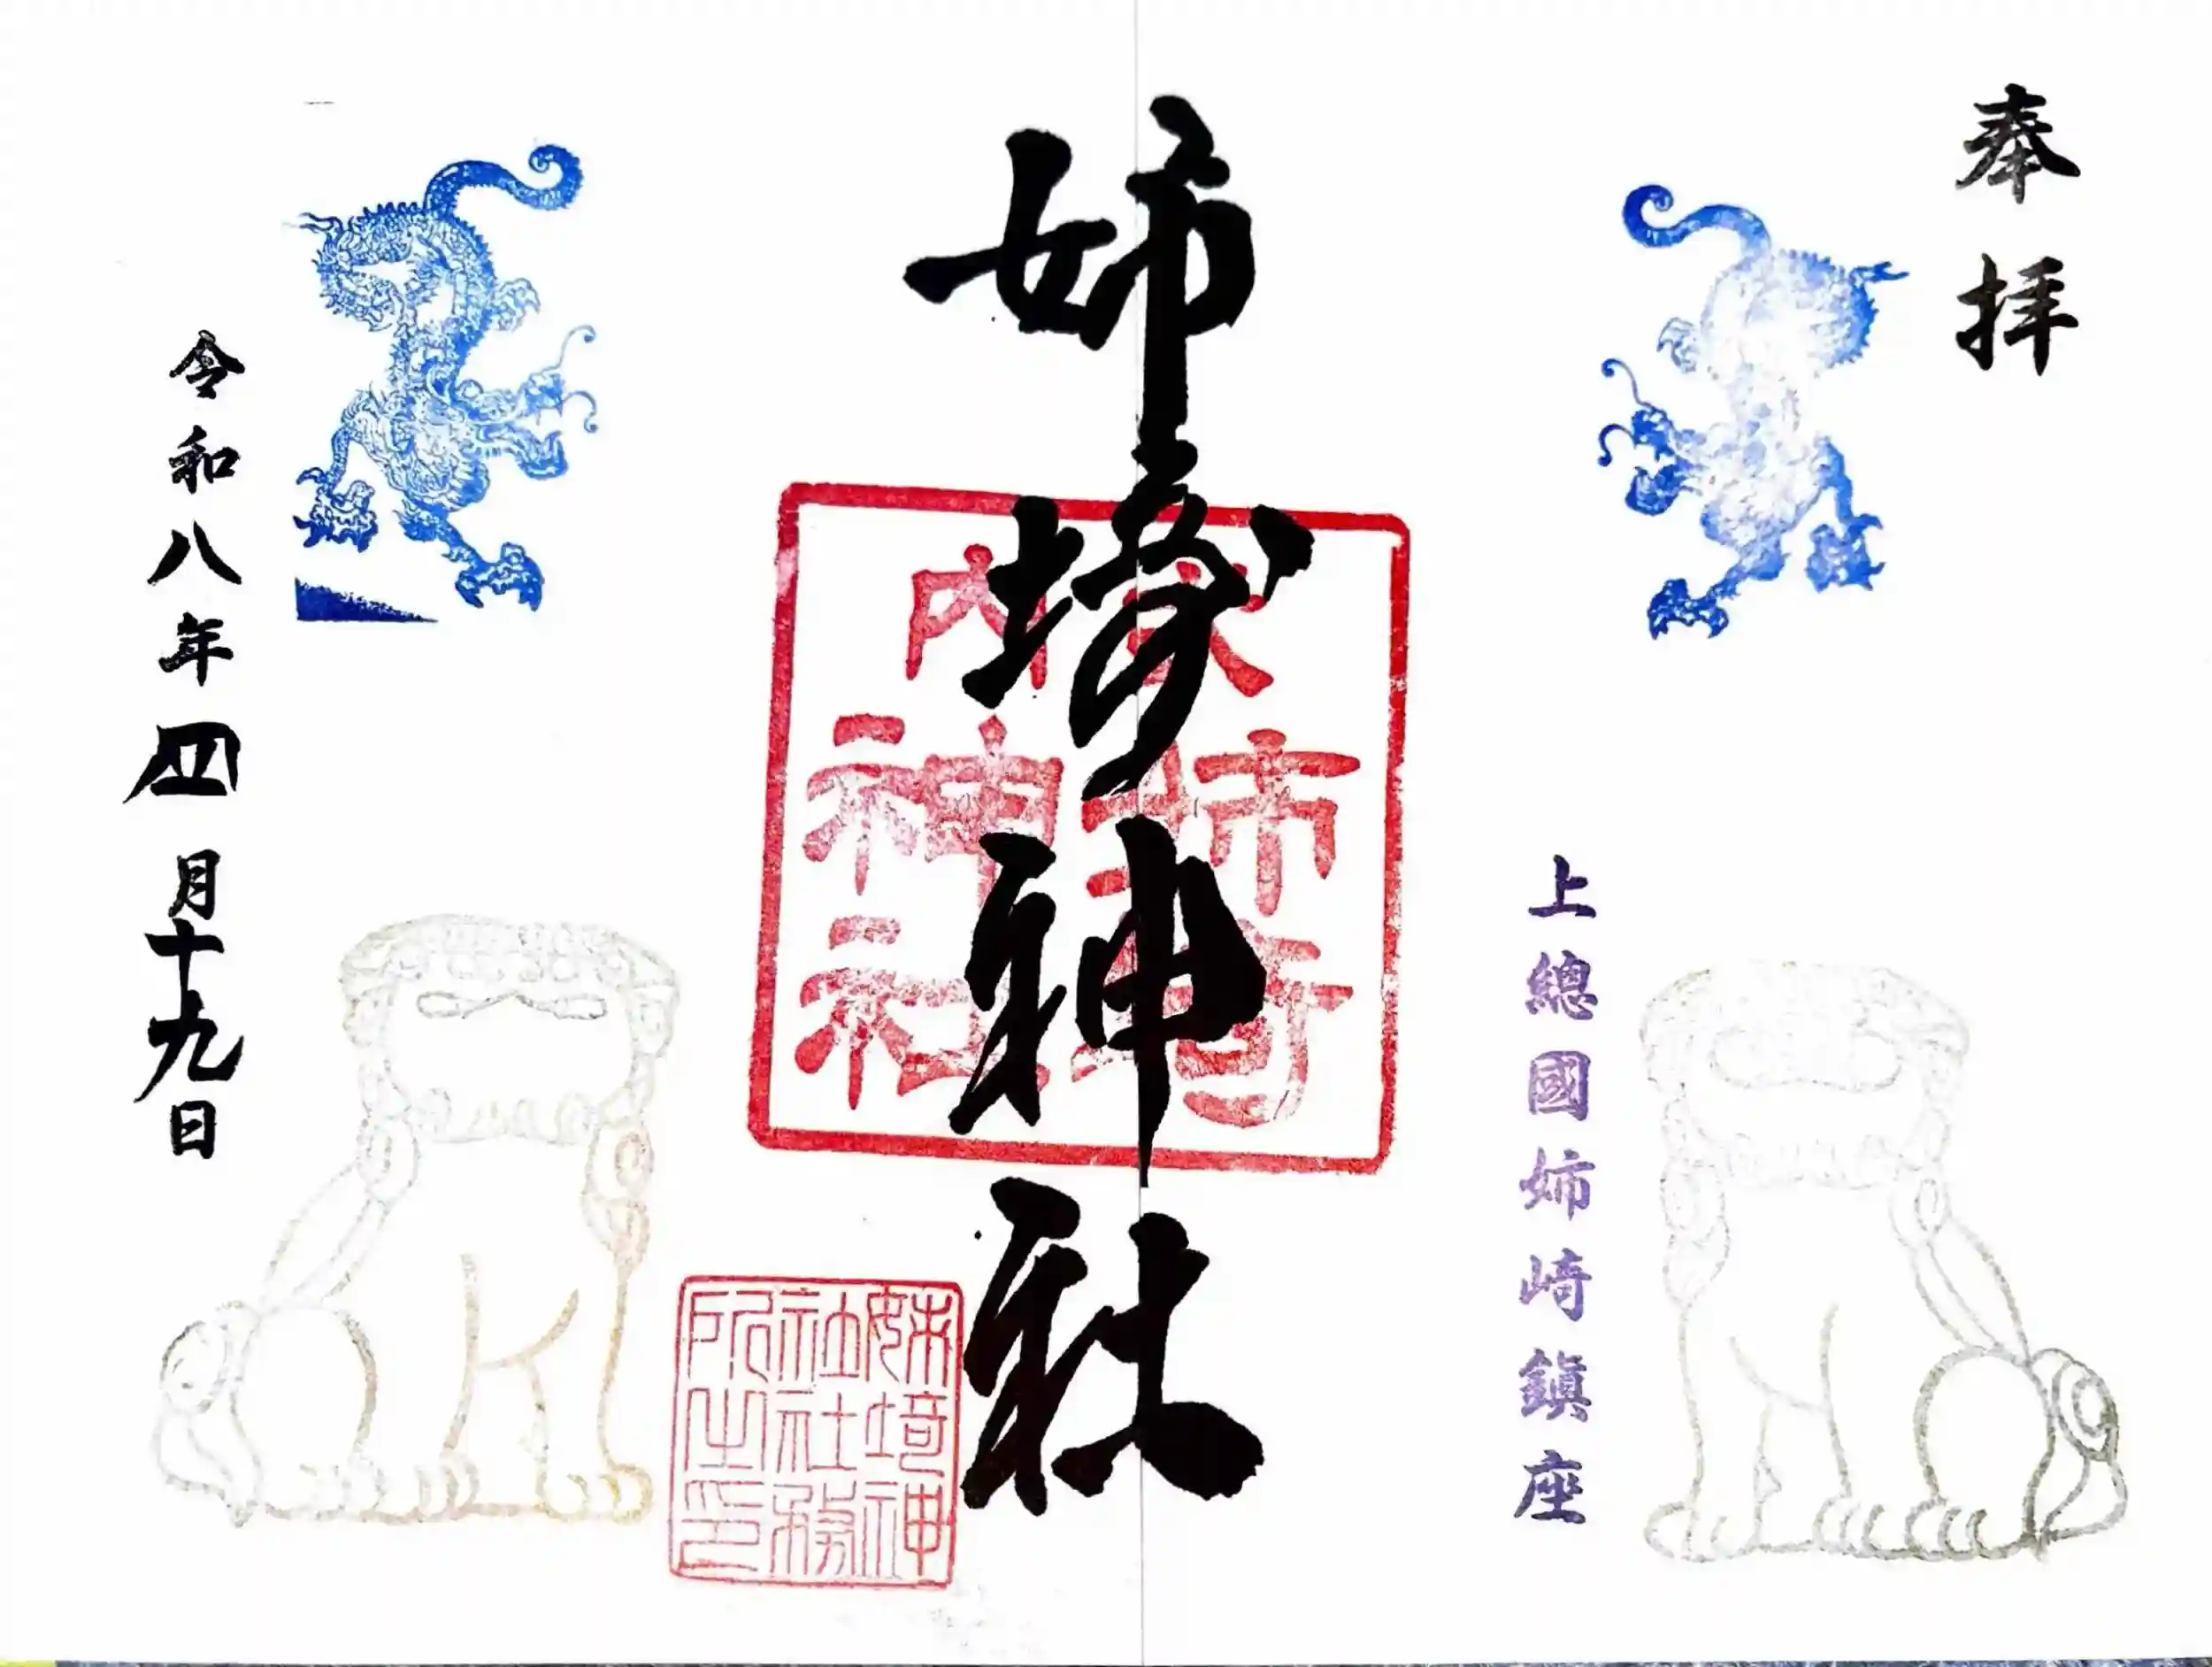 奉拝
上總國姉崎鎭座
姉埼神社
式内
姉埼
神社
姉埼神
社社務
所之印
令和八年四月十九日